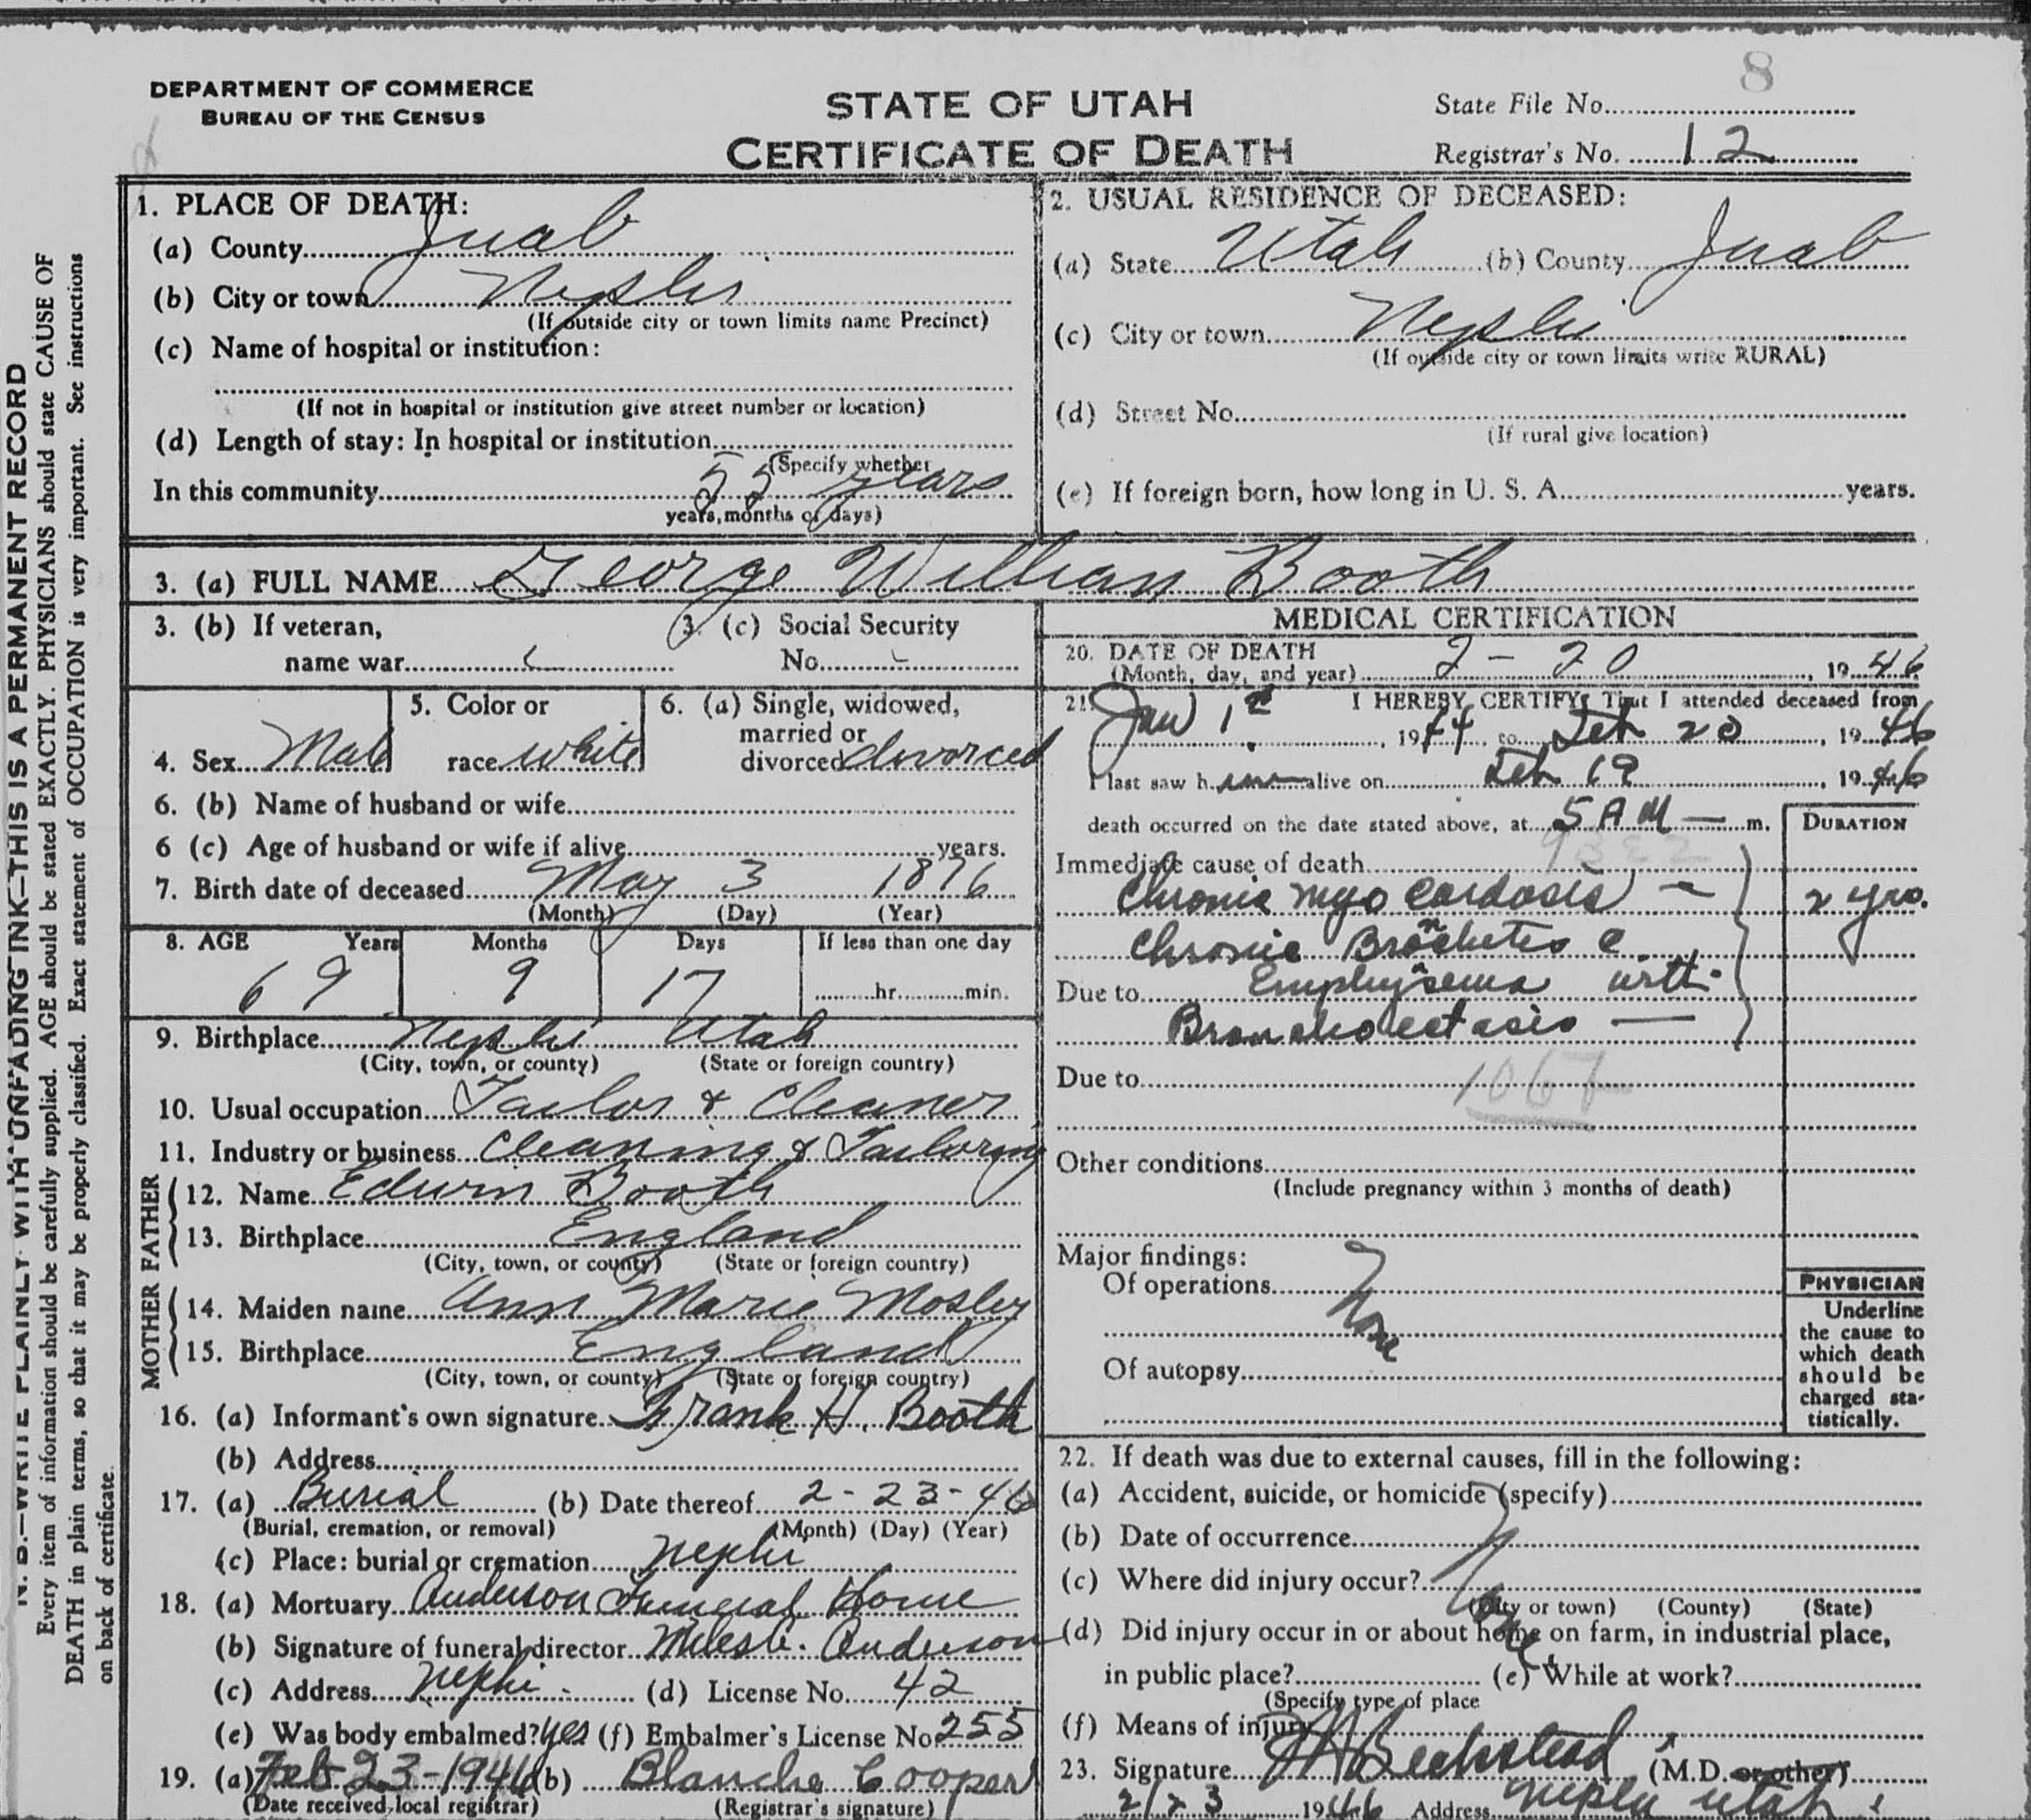 8
DEPARTMENT OF COMMERCE
BUREAU OF THE CENSUS
STATE OF UTAH
CERTIFICATE OF DEATH
State File No.
Registrar's No. 12
N. B.—WRITE PLAINLY WITH UNFADING INK—THIS IS A PERMANENT RECORD
Every item of information should be carefully supplied. AGE should be stated EXACTLY. PHYSICIANS should state CAUSE OF
DEATH in plain terms, so that it may be properly classified. Exact statement of OCCUPATION is very important. See instructions
on back of certificate.
1. PLACE OF DEATH:
(a) County Juab
(b) City or town Nephi
(If outside city or town limits name Precinct)
(c) Name of hospital or institution:
(If not in hospital or institution give street number or location)
(d) Length of stay: In hospital or institution
(Specify whether
In this community 55 years
years, months or days)
2. USUAL RESIDENCE OF DECEASED:
(a) State Utah (b) County Juab
(c) City or town Nephi
(If outside city or town limits write RURAL)
(d) Street No.
(If rural give location)
(e) If foreign born, how long in U. S. A. years.
3. (a) FULL NAME George William Booth
3. (b) If veteran,
name war
3. (c) Social Security
No.
4. Sex Male
5. Color or
race white
6. (a) Single, widowed,
married or
divorced divorced
6. (b) Name of husband or wife
6 (c) Age of husband or wife if alive years.
7. Birth date of deceased May 3 1876
(Month) (Day) (Year)
8. AGE Years Months Days If less than one day
69 9 17 hr. min.
9. Birthplace Nephi Utah
(City, town, or county) (State or foreign country)
10. Usual occupation Tailor & Cleaner
11. Industry or business Cleaning & Tailoring
FATHER
12. Name Edwin Booth
13. Birthplace England
(City, town, or county) (State or foreign country)
MOTHER
14. Maiden name Ann Marie Mosley
15. Birthplace England
(City, town, or county) (State or foreign country)
16. (a) Informant's own signature Frank H. Booth
(b) Address
17. (a) Burial (b) Date thereof 2-23-46
(Burial, cremation, or removal) (Month) (Day) (Year)
(c) Place: burial or cremation Nephi
18. (a) Mortuary Anderson Funeral Home
(b) Signature of funeral director Anderson
(c) Address Nephi (d) License No. 42
(e) Was body embalmed? yes (f) Embalmer's License No. 255
19. (a) Feb 23-1946 (b) Blanche Cooper
(Date received local registrar) (Registrar's signature)
MEDICAL CERTIFICATION
20. DATE OF DEATH
(Month, day, and year) 2-20, 1946
21. I HEREBY CERTIFY, That I attended deceased from
Jan 1st, 1944, to Feb 20, 1946
I last saw him alive on Feb 19, 1946
death occurred on the date stated above, at 5 AM — m.
DURATION
Immediate cause of death
Chronic myo cardosis — 2 yrs.
Chronic Bronchetis c
Due to Emphysema with
Bronchoectasis —
Due to
1067
Other conditions
(Include pregnancy within 3 months of death)
Major findings:
Of operations None
Of autopsy
PHYSICIAN
Underline
the cause to
which death
should be
charged sta-
tistically.
22. If death was due to external causes, fill in the following:
(a) Accident, suicide, or homicide (specify)
(b) Date of occurrence
(c) Where did injury occur? None
(City or town) (County) (State)
(d) Did injury occur in or about home on farm, in industrial place,
in public place? (e) While at work?
(Specify type of place
(f) Means of injury
23. Signature Beckstead (M.D. or other)
2/23 1946 Address Nephi Utah